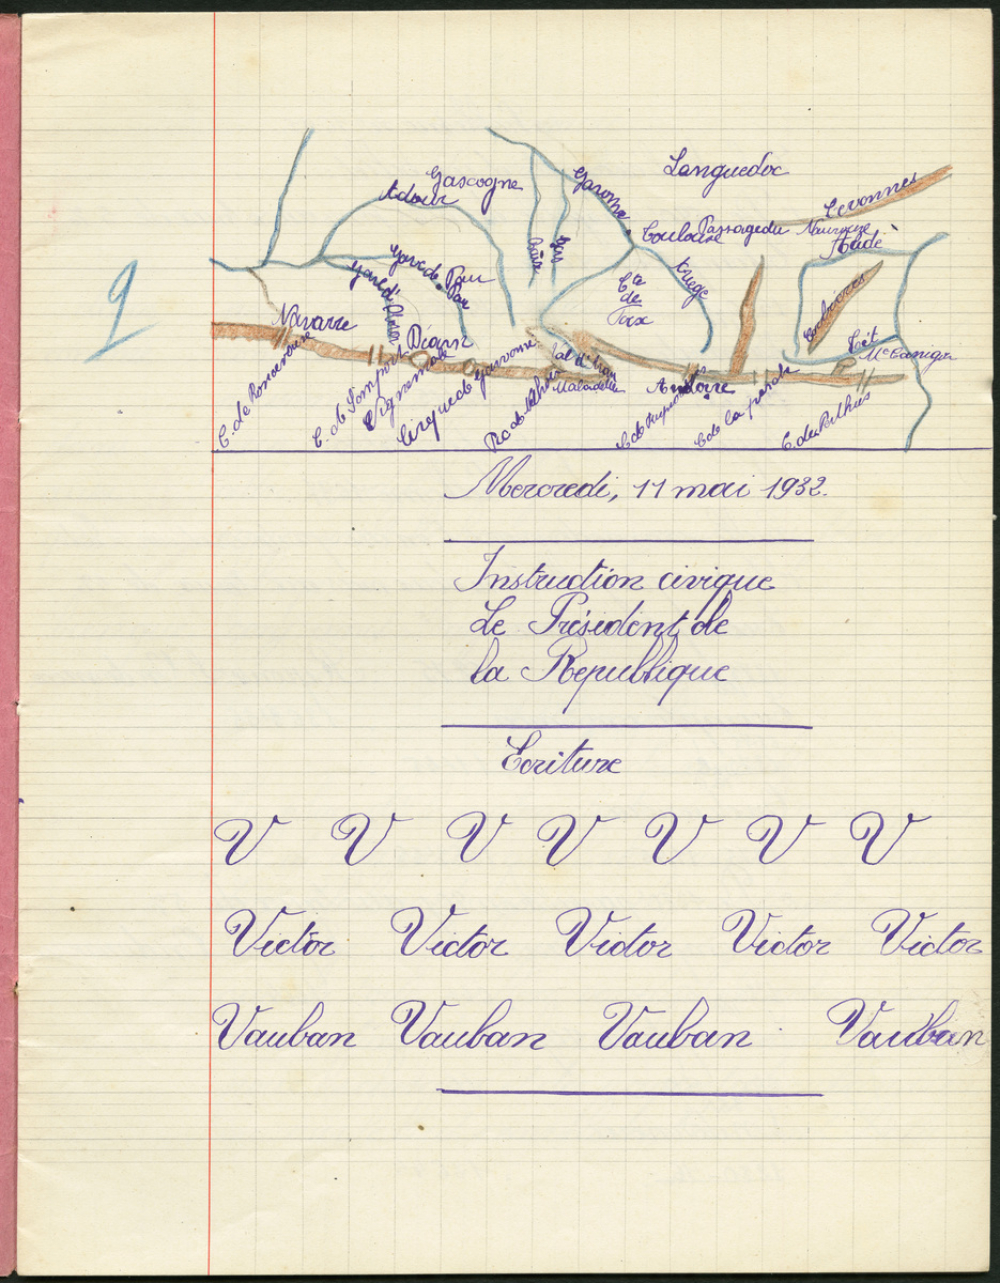 Languedoc
Gascogne
Adour
Garonne
Cevonnes
Toulouse
Passage du
Naurouze
Aude
Gave de Pau
Pau
Baïse
Gers
Ariège
Cté
de
Foix
Corbières
Navarre
Béarn
Têt
Mt Canigou
Val d'Aran
Maladetta
Andorre
C. de Roncevaux
C. de Somport
Vignemale
Cirque de Gavarnie
C. de la perche
C. du Perthus
9
Mercredi, 11 mai 1932.
Instruction civique
Le Président de
la République
Ecriture
V V V V V V V
Victor Victor Victor Victor Victor
Vauban Vauban Vauban Vauban